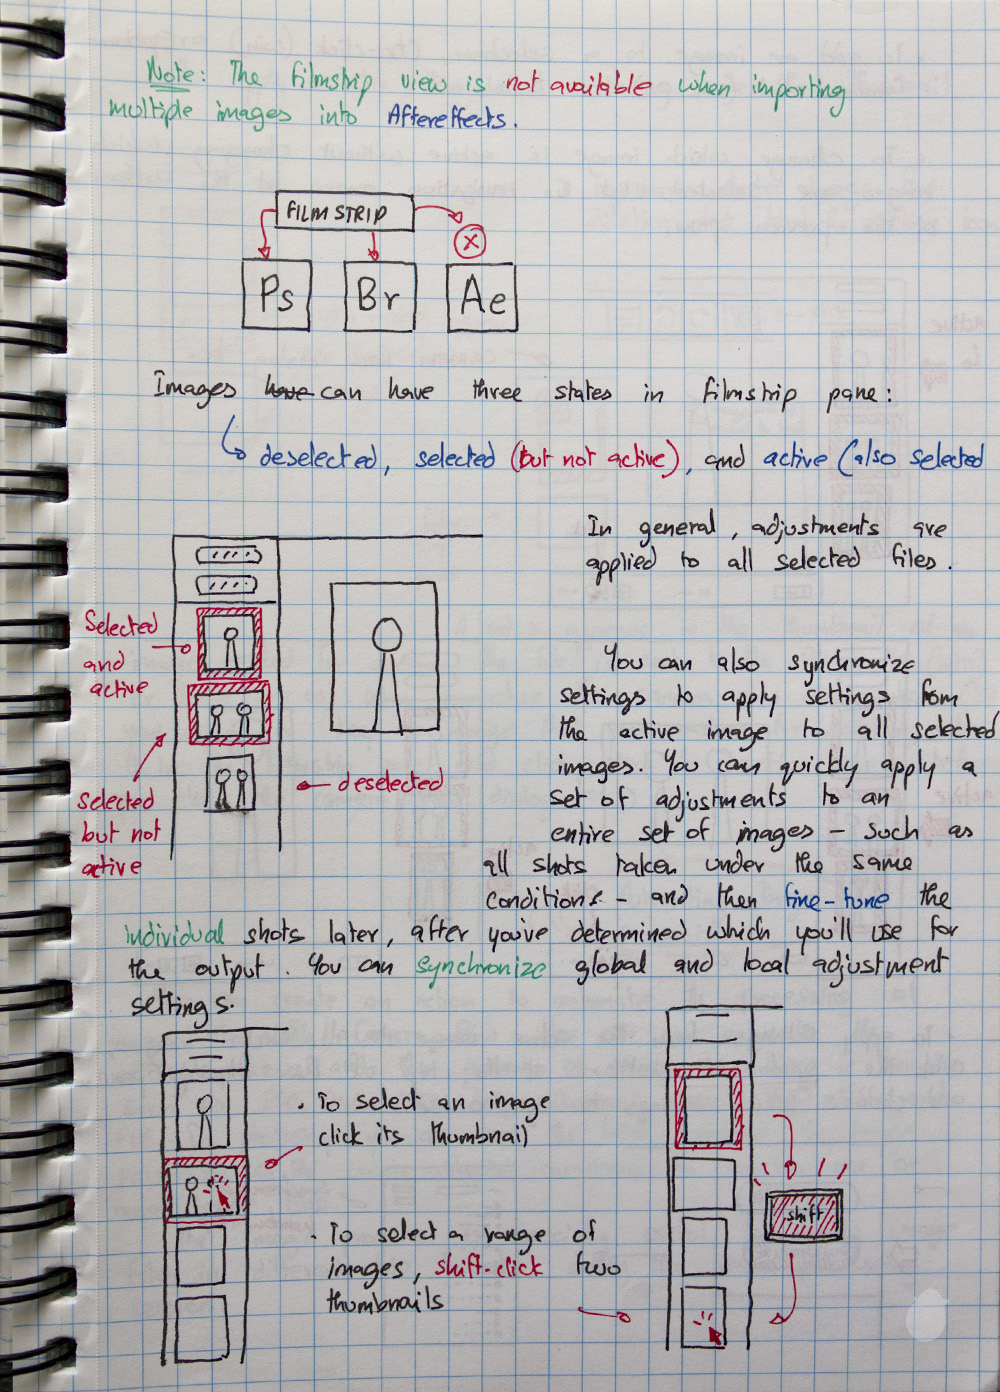 Note: The filmstrip view is not available when importing
multiple images into Aftereffects.
FILM STRIP
X
Ps Br Ae
Images have can have three states in filmstrip pane:
deselected, selected (but not active), and active (also selected
In general, adjustments are
applied to all selected files.
Selected
and
active
You can also synchronize
settings to apply settings from
the active image to all selected
images. You can quickly apply a
set of adjustments to an
entire set of images - such as
all shots taken under the same
conditions - and then fine-tune the
individual shots later, after you've determined which you'll use for
the output. You can synchronize global and local adjustment
settings.
deselected
selected
but not
active
. To select an image
click its thumbnail
. To select a range of
images, shift-click two
thumbnails
shift